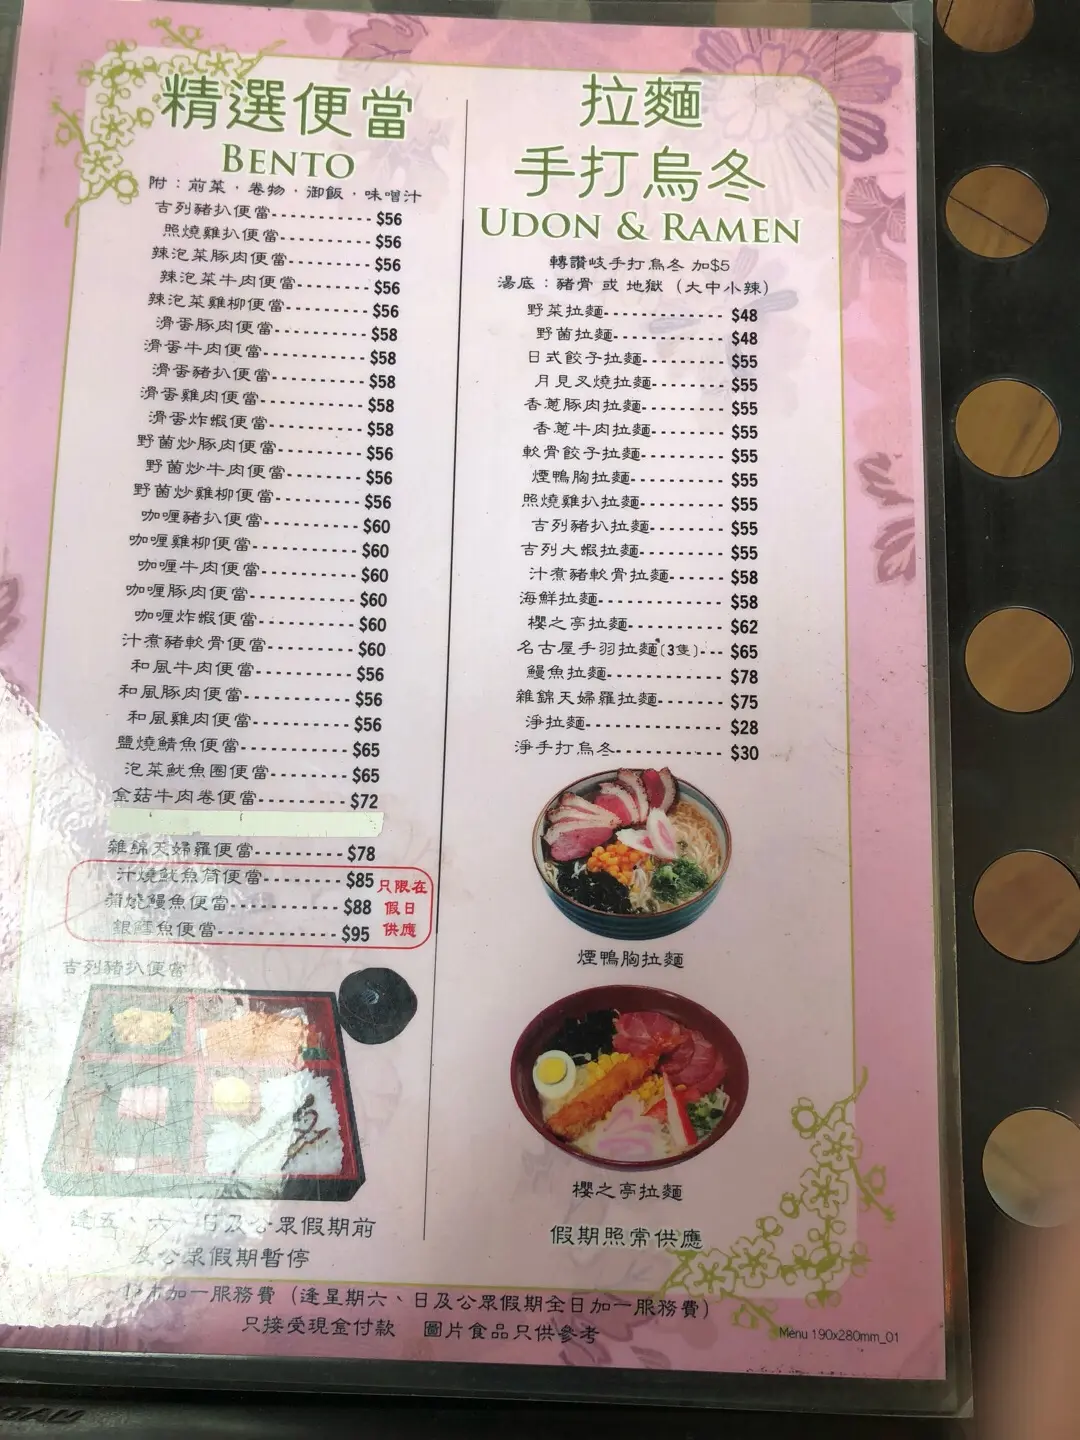 精選便當
BENTO
附：前菜．卷物．御飯．味噌汁
吉列豬扒便當----------- $56
照燒雞扒便當---------- $56
辣泡菜豚肉便當---------- $56
辣泡菜牛肉便當--------- $56
辣泡菜雞柳便當---------- $56
滑蛋豚肉便當----------- $58
滑蛋牛肉便當------------ $58
滑蛋豬扒便當----------- $58
滑蛋雞肉便當------------ $58
滑蛋炸蝦便當----------- $58
野菌炒豚肉便當---------- $56
野菌炒牛肉便當--------- $56
野菌炒雞柳便當---------- $56
咖喱豬扒便當----------- $60
咖喱雞柳便當------------ $60
咖喱牛肉便當----------- $60
咖喱豚肉便當------------ $60
咖喱炸蝦便當----------- $60
汁煮豬軟骨便當---------- $60
和風牛肉便當----------- $56
和風豚肉便當------------ $56
和風雞肉便當----------- $56
鹽燒鯖魚便當------------ $65
泡菜魷魚圈便當--------- $65
金菇牛肉卷便當---------- $72
雜錦天婦羅便當---------- $78
汁燒魷魚筒便當--------- $85
蒲燒鰻魚便當------------ $88
銀鱈魚便當-------------- $95
只限在
假日
供應
吉列豬扒便當
逢五、六、日及公眾假期前
及公眾假期暫停
拉麵
手打烏冬
UDON & RAMEN
轉讚岐手打烏冬 加$5
湯底：豬骨 或 地獄（大中小辣）
野菜拉麵------------- $48
野菌拉麵------------ $48
日式餃子拉麵--------- $55
月見叉燒拉麵-------- $55
香蔥豚肉拉麵--------- $55
香蔥牛肉拉麵-------- $55
軟骨餃子拉麵--------- $55
煙鴨胸拉麵---------- $55
照燒雞扒拉麵--------- $55
吉列豬扒拉麵-------- $55
吉列大蝦拉麵--------- $55
汁煮豬軟骨拉麵------ $58
海鮮拉麵------------- $58
櫻之亭拉麵---------- $62
名古屋手羽拉麵(3隻)--- $65
鰻魚拉麵------------ $78
雜錦天婦羅拉麵------- $75
淨拉麵-------------- $28
淨手打烏冬----------- $30
煙鴨胸拉麵
櫻之亭拉麵
假期照常供應
加一服務費（逢星期六、日及公眾假期全日加一服務費）
只接受現金付款 圖片食品只供參考
Menu 190x280mm_01